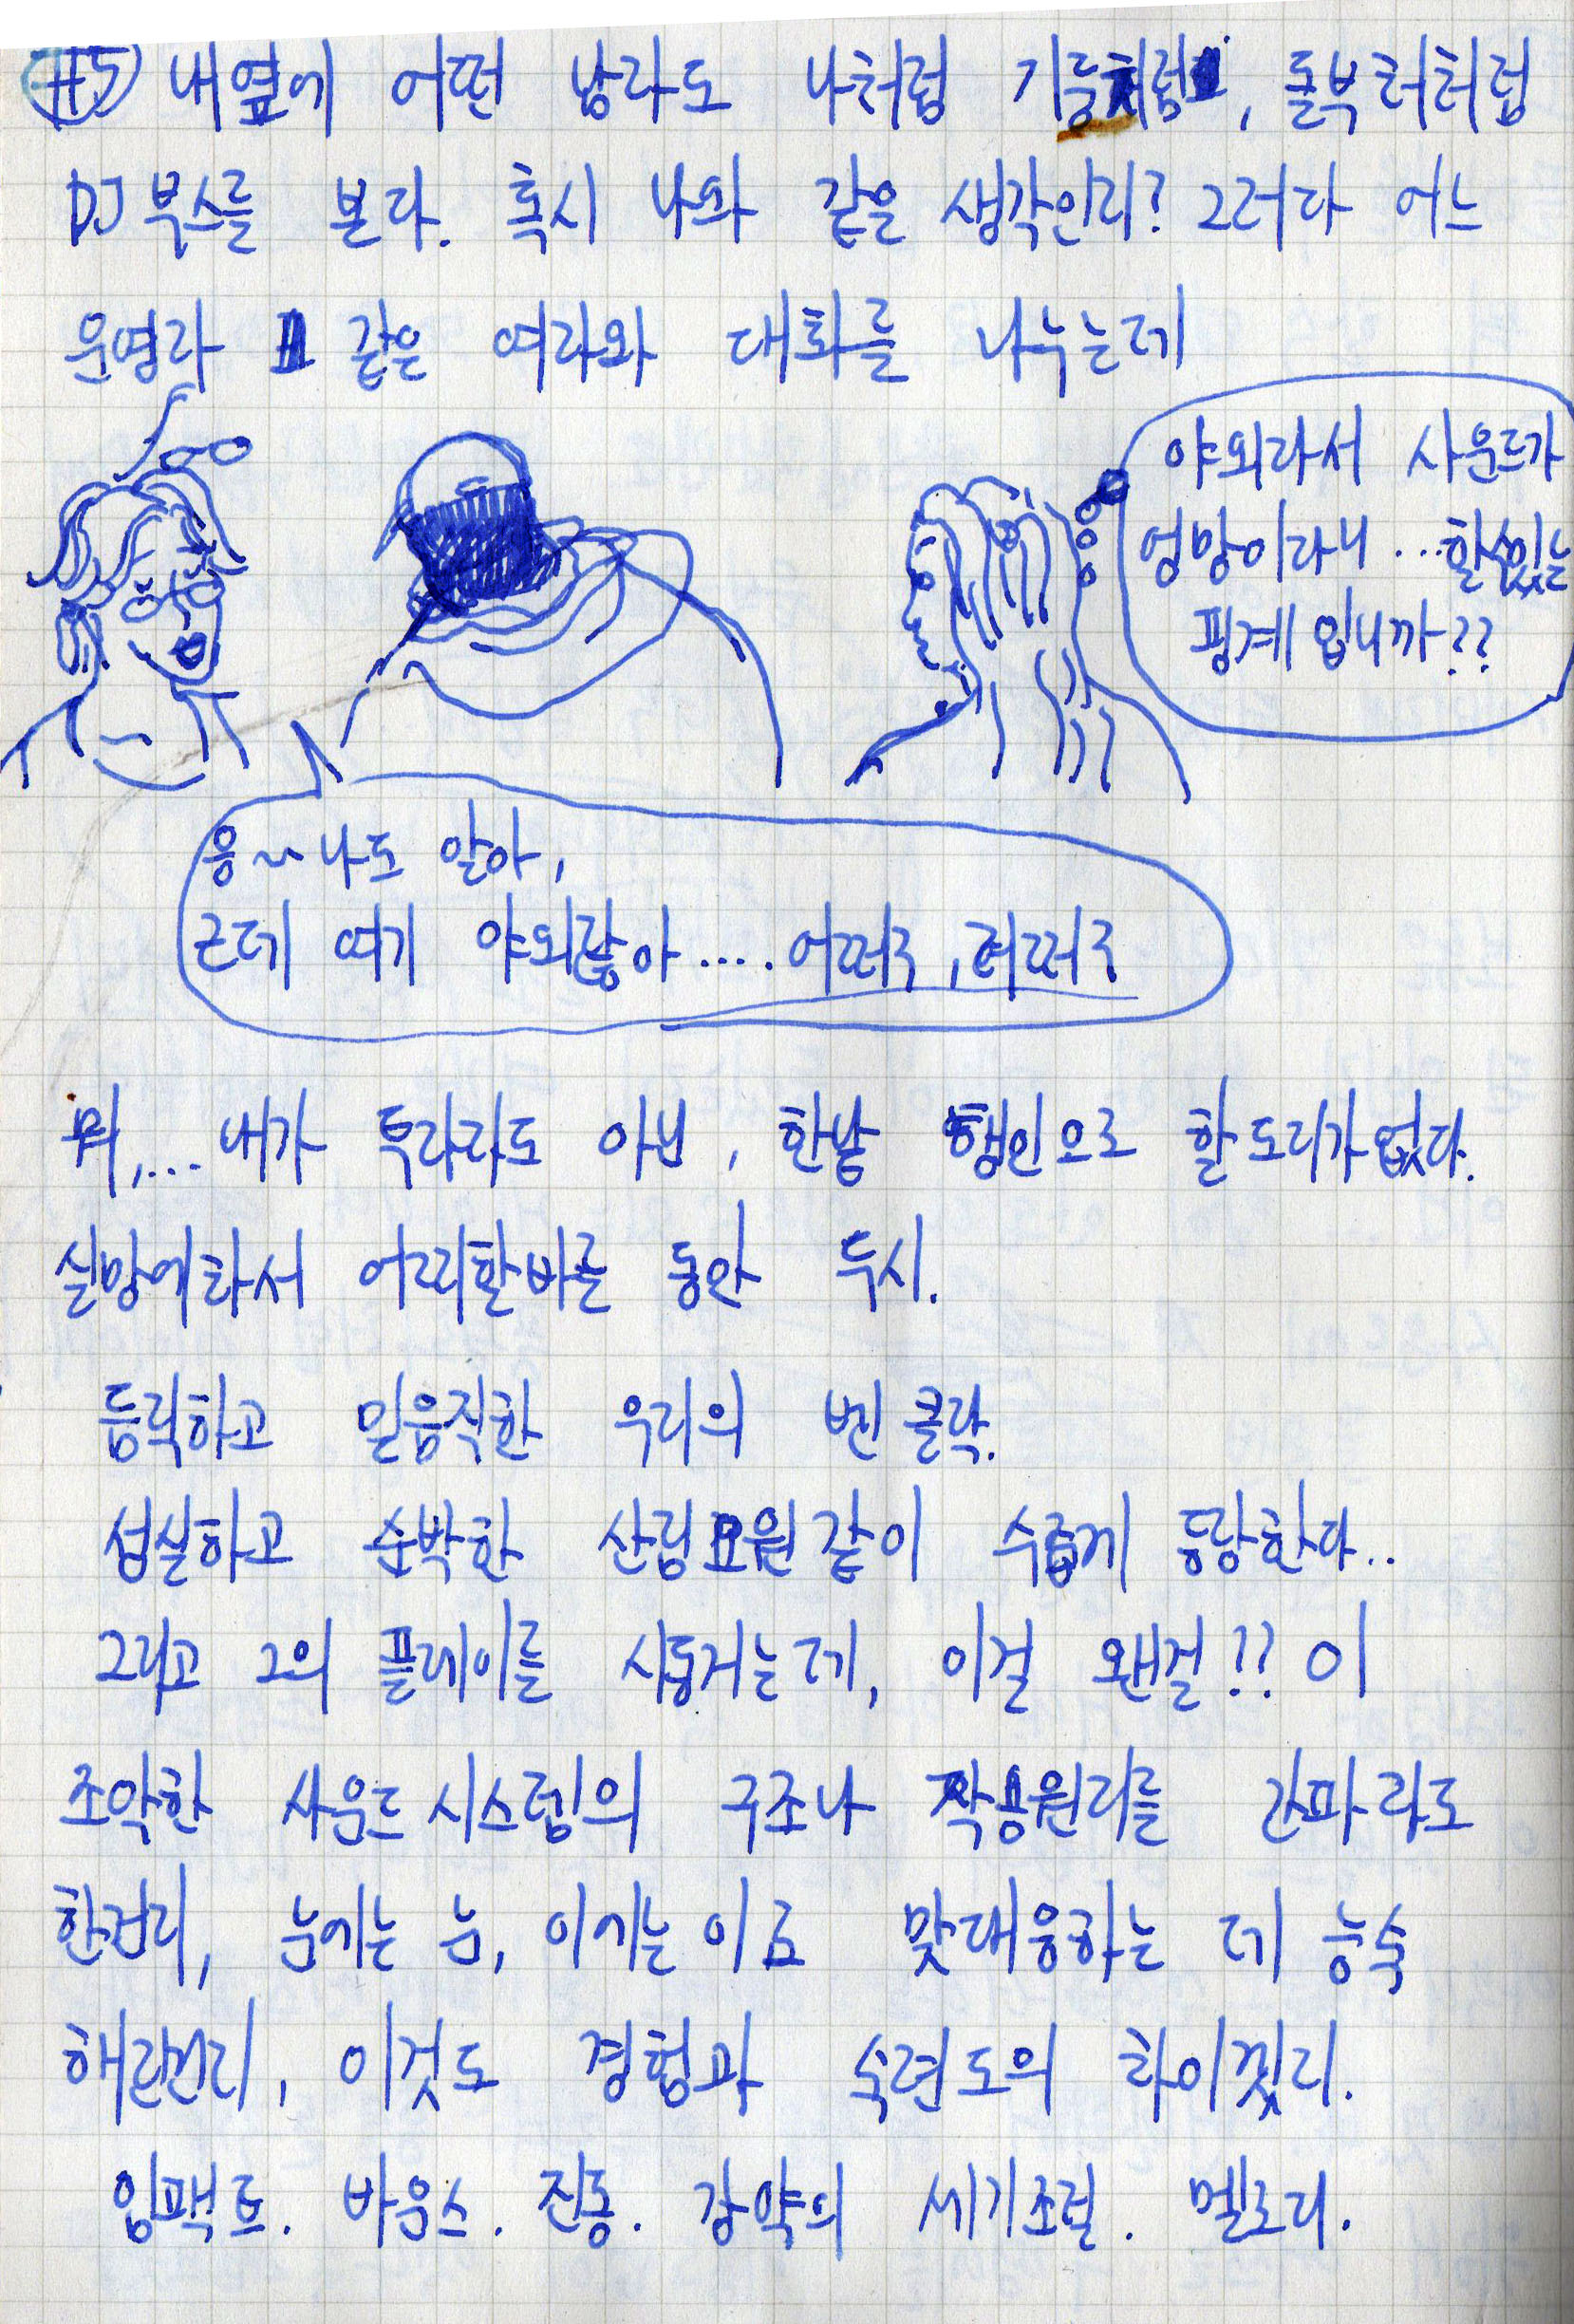 #5 내옆에 어떤 남자도 나처럼 기둥처럼, 돌부처처럼
DJ 부스를 본다. 혹시 나와 같은 생각인지? 그러다 어느
운영자 같은 여자와 대화를 나누는데
야외라서 사운드가
엉망이라니 ...할수있는
핑계 입니까??
응~~나도 알아,
근데 여기 야외잖아.... 어쩌구, 저쩌구
뭐,... 내가 투자자도 아닌, 한낱 행인으로 할 도리가 없다.
실망에 차서 어찌할바를 동안 두시.
듬직하고 믿음직한 우리의 벤 클락.
성실하고 순박한 산림요원 같이 수줍게 등장한다..
그리고 그의 플레이를 시동거는데, 이걸 왠걸?? 이
조악한 사운드 시스템의 구조나 작용원리를 간파라도
한건지, 눈에는 눈, 이에는 이로 맞대응하는 데 능숙
해진건지, 이것도 경험과 숙련도의 차이겠지.
임팩트. 바운스. 진동. 강약의 세기조절. 멜로디.